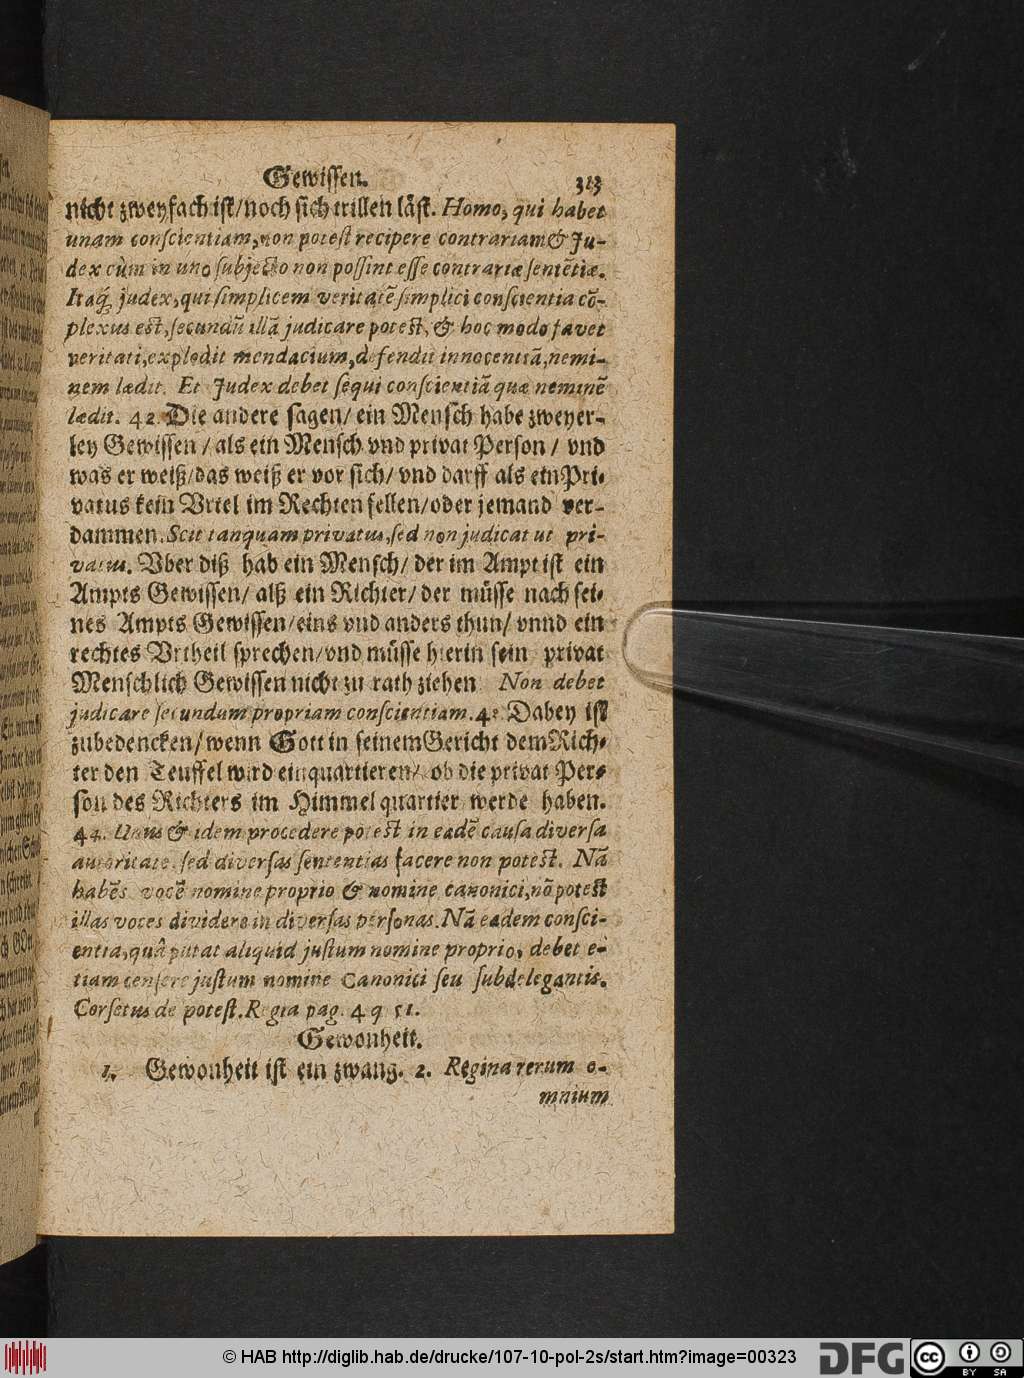 Gewissen. 313
nicht zweyfach ist/noch sich trillen läst. Homo, qui habet
unam conscientiam, non potest recipere contrariam & Ju-
dex cùm in uno subjecto non possint esse contrariæ sentētiæ.
Itaq́; judex, qui simplicem veritatē simplici conscientia cō-
plexus est, secundū illā judicare potest, & hoc modo favet
veritati, explodit mendacium, defendit innocentiā, nemi-
nem lædit. Et Judex debet sequi conscientiā quæ neminē
lædit. 42. Die andere sagen/ ein Mensch habe zweyer-
ley Gewissen / als ein Mensch vnd privat Person / vnd
was er weiß/das weiß er vor sich/ vnd darff als ein Pri-
vatus kein Vrtel im Rechten fellen/oder jemand ver-
dammen. Scit tanquam privatus, sed non judicat ut pri-
vatus. Vber diß hab ein Mensch/ der im Ampt ist ein
Ampts Gewissen/ alß ein Richter/ der müsse nach sei-
nes Ampts Gewissen/eins vnd anders thun/ vnnd ein
rechtes Vrtheil sprechen/vnd müsse hierin sein privat
Menschlich Gewissen nicht zu rath ziehen Non debet
judicare secundum propriam conscientiam. Dabey ist
zubedencken/wenn Gott in seinem Gericht dem Rich-
ter den Teuffel wird einquartieren/ ob die privat Per-
son des Richters im Himmel quartier werde haben.
44. Unus & idem procedere potest in eadē causa diversa
autoritate, sed diversas sententias facere non potest. Nā
habēs vocē nomine proprio & nomine canonici, nō potest
illas voces dividere in diversas personas. Nā eadem consci-
entia, quâ putat aliquid justum nomine proprio, debet e-
tiam censere justum nomine Canonici seu subdelegantis.
Corsetus de potest. Regia pag. 4 q 51.
Gewonheit.
1. Gewonheit ist ein zwang. 2. Regina rerum o-
mnium
© HAB http://diglib.hab.de/drucke/107-10-pol-2s/start.htm?image=00323
DFG cc BY SA